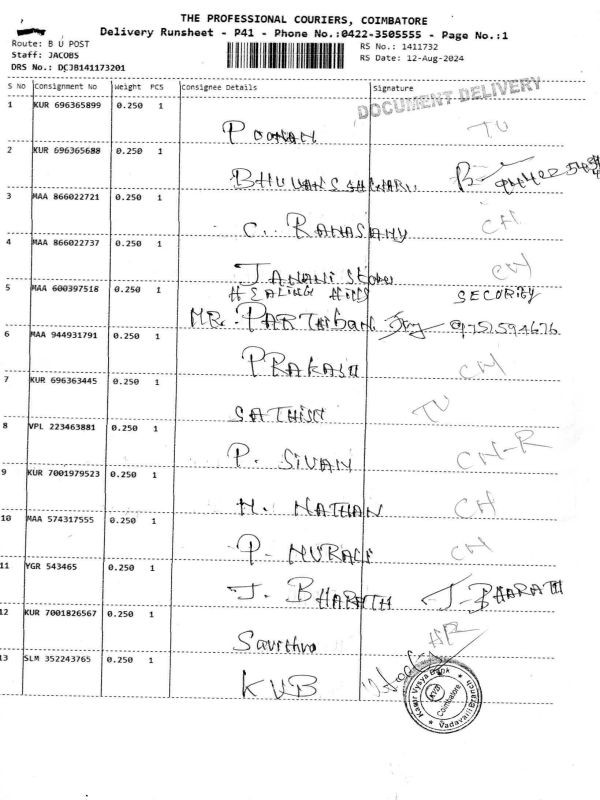 THE PROFESSIONAL COURIERS, COIMBATORE
Delivery Runsheet - P41 - Phone No.:0422-3505555 - Page No.:1
Route: B U POST
Staff: JACOBS
DRS No.: DCJB141173201
RS No.: 1411732
RS Date: 12-Aug-2024
S No Consignment No Weight PCS Consignee Details Signature
DOCUMENT DELIVERY
1 KUR 696365899 0.250 1
POONAN TU
2 KUR 696365688 0.250 1
BHUVANESHWARI
3 MAA 866022721 0.250 1
C. RAMASAMY CH
4 MAA 866022737 0.250 1
JANANI Store CH
5 MAA 600397518 0.250 1
HEALING HILLS SECURITY
MR. PARTHIBAN 9751594676
6 MAA 944931791 0.250 1
PRAKASH CH
7 KUR 696363445 0.250 1
SATHISH TU
8 VPL 223463881 0.250 1
P. SIVAN CH-R
9 KUR 7001979523 0.250 1
M. NATHAN CH
10 MAA 574317555 0.250 1
P. MURALI CH
11 YGR 543465 0.250 1
J. BHARATH J. BHARATH
12 KUR 7001826567 0.250 1
Savithra HR
13 SLM 352243765 0.250 1
KVB
Karur Vysya Bank
KVB
Coimbatore
Vadavalli Branch